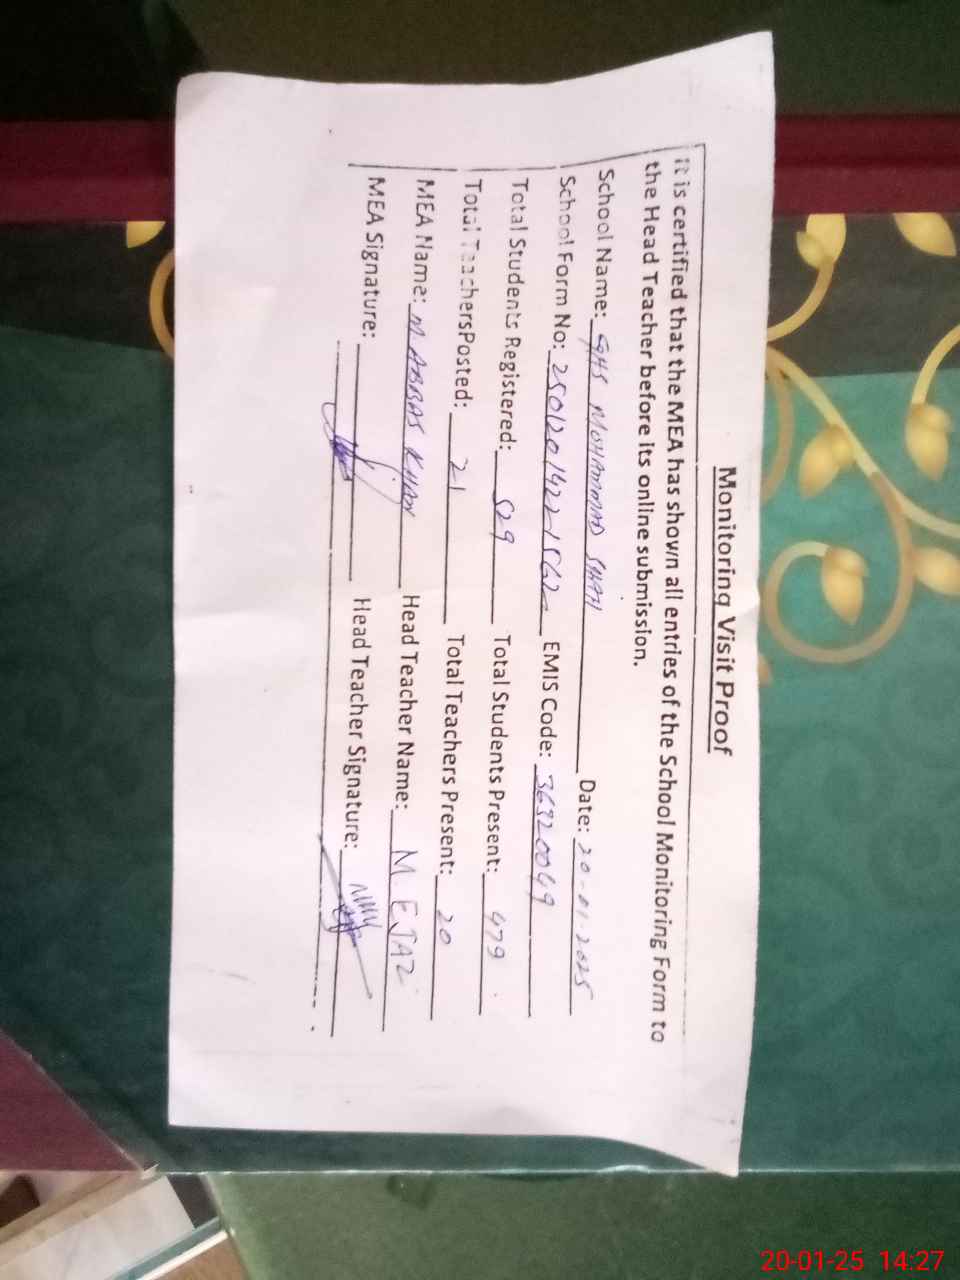 Monitoring Visit Proof
It is certified that the MEA has shown all entries of the School Monitoring Form to
the Head Teacher before its online submission.
School Name: GHS MOHAMMAD SHAH Date: 20-01-2025
School Form No: 25012014221562 EMIS Code: 36320049
Total Students Registered: 529 Total Students Present: 479
Total TeachersPosted: 21 Total Teachers Present: 20
MEA Name: M ABBAS KHAN Head Teacher Name: M. EJAZ
MEA Signature: Head Teacher Signature:
20-01-25 14:27